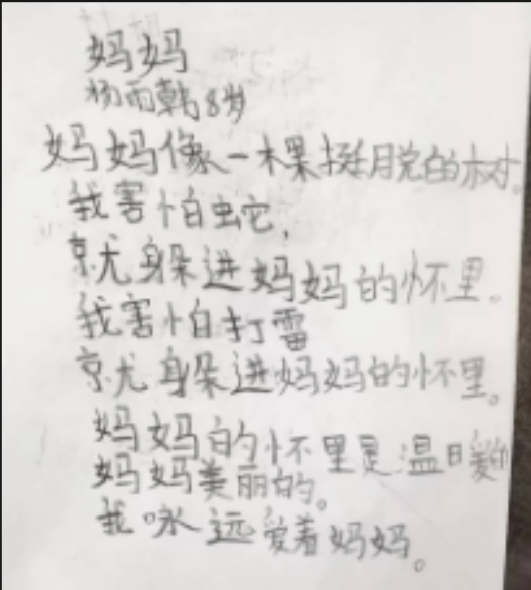 妈妈
杨雨韩8岁
妈妈像一棵挺脱的树。
我害怕虫它,
就躲进妈妈的怀里。
我害怕打雷
就躲进妈妈的怀里。
妈妈的怀里是温暖的
妈妈美丽的。
我咏远爱着妈妈。